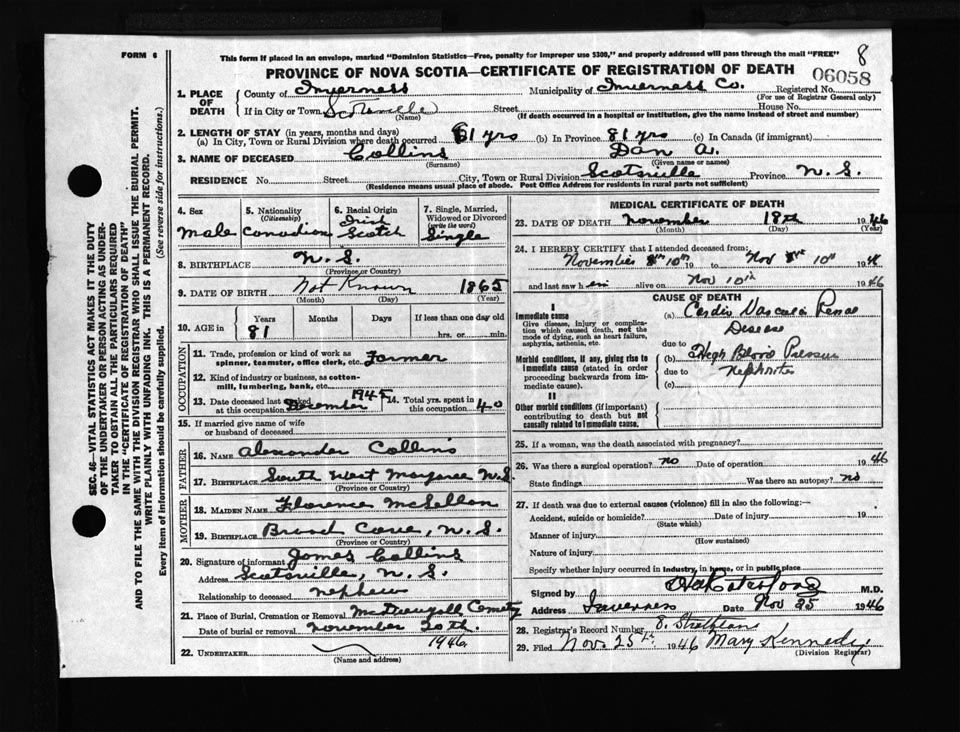 FORM 6
This form if placed in an envelope, marked "Dominion Statistics—Free, penalty for improper use $300," and properly addressed will pass through the mail "FREE"
8
PROVINCE OF NOVA SCOTIA—CERTIFICATE OF REGISTRATION OF DEATH
06058
1. PLACE OF DEATH
County of Inverness Municipality of Inverness Co. Registered No.
(For use of Registrar General only)
If in City or Town Scotsville Street House No.
(Name) (If death occurred in a hospital or institution, give the name instead of street and number)
2. LENGTH OF STAY (in years, months and days)
(a) In City, Town or Rural Division where death occurred 61 yrs (b) In Province 81 yrs (c) In Canada (if immigrant)
3. NAME OF DECEASED Collins Dan A.
(Surname) (Given name or names)
RESIDENCE No. Street City, Town or Rural Division Scotsville Province N. S.
(Residence means usual place of abode. Post Office Address for residents in rural parts not sufficient)
4. Sex Male
5. Nationality (Citizenship) Canadian
6. Racial Origin Irish Scotch
7. Single, Married, Widowed or Divorced (write the word) Single
8. BIRTHPLACE N. S.
(Province or Country)
9. DATE OF BIRTH Not Known 1865
(Month) (Day) (Year)
10. AGE in Years Months Days If less than one day old
81 hrs. or min.
OCCUPATION
11. Trade, profession or kind of work as spinner, teamster, office clerk, etc. Farmer
12. Kind of industry or business, as cotton-mill, lumbering, bank, etc.
13. Date deceased last worked at this occupation December 1945
14. Total yrs. spent in this occupation 40
15. If married give name of wife or husband of deceased
FATHER
16. NAME Alexander Collins
17. BIRTHPLACE South West Margaree N.S.
(Province or Country)
MOTHER
18. MAIDEN NAME Florence McLellan
19. BIRTHPLACE Broad Cove, N. S.
(Province or Country)
20. Signature of informant James Collins
Address Scotsville, N. S.
Relationship to deceased nephew
21. Place of Burial, Cremation or Removal McDougall Cemetery
Date of burial or removal November 20th. 1946
22. UNDERTAKER
(Name and address)
MEDICAL CERTIFICATE OF DEATH
23. DATE OF DEATH November 18th 1946
(Month) (Day) (Year)
24. I HEREBY CERTIFY that I attended deceased from:
November 10th 19 to Nov 10th 19
and last saw h im alive on Nov 10th 1946
CAUSE OF DEATH
I
Immediate cause
Give disease, injury or complication which caused death, not the mode of dying, such as heart failure, asphyxia, asthenia, etc.
(a) Cardio Vascular Renal Disease
due to
Morbid conditions, if any, giving rise to immediate cause (stated in order proceeding backwards from immediate cause).
(b) High Blood Pressure
due to Nephritis
(c)
II
Other morbid conditions (if important) contributing to death but not causally related to immediate cause.
25. If a woman, was the death associated with pregnancy?
26. Was there a surgical operation? no Date of operation 1946
State findings Was there an autopsy? no
27. If death was due to external causes (violence) fill in also the following:—
Accident, suicide or homicide? Date of injury 19
(State which)
Manner of injury
(How sustained)
Nature of injury
Specify whether injury occurred in industry, in home, or in public place
Signed by M.D.
Address Inverness Date Nov 25 1946
28. Registrar's Record Number 8.
29. Filed Nov. 25th. 1946 Mary Kennedy
(Division Registrar)
SEC. 46—VITAL STATISTICS ACT MAKES IT THE DUTY OF THE UNDERTAKER OR PERSON ACTING AS UNDERTAKER TO OBTAIN ALL THE PARTICULARS REQUIRED IN THE "CERTIFICATE OF REGISTRATION OF DEATH" AND TO FILE THE SAME WITH THE DIVISION REGISTRAR WHO SHALL ISSUE THE BURIAL PERMIT.
WRITE PLAINLY WITH UNFADING INK. THIS IS A PERMANENT RECORD.
Every item of information should be carefully supplied. (See reverse side for instructions.)